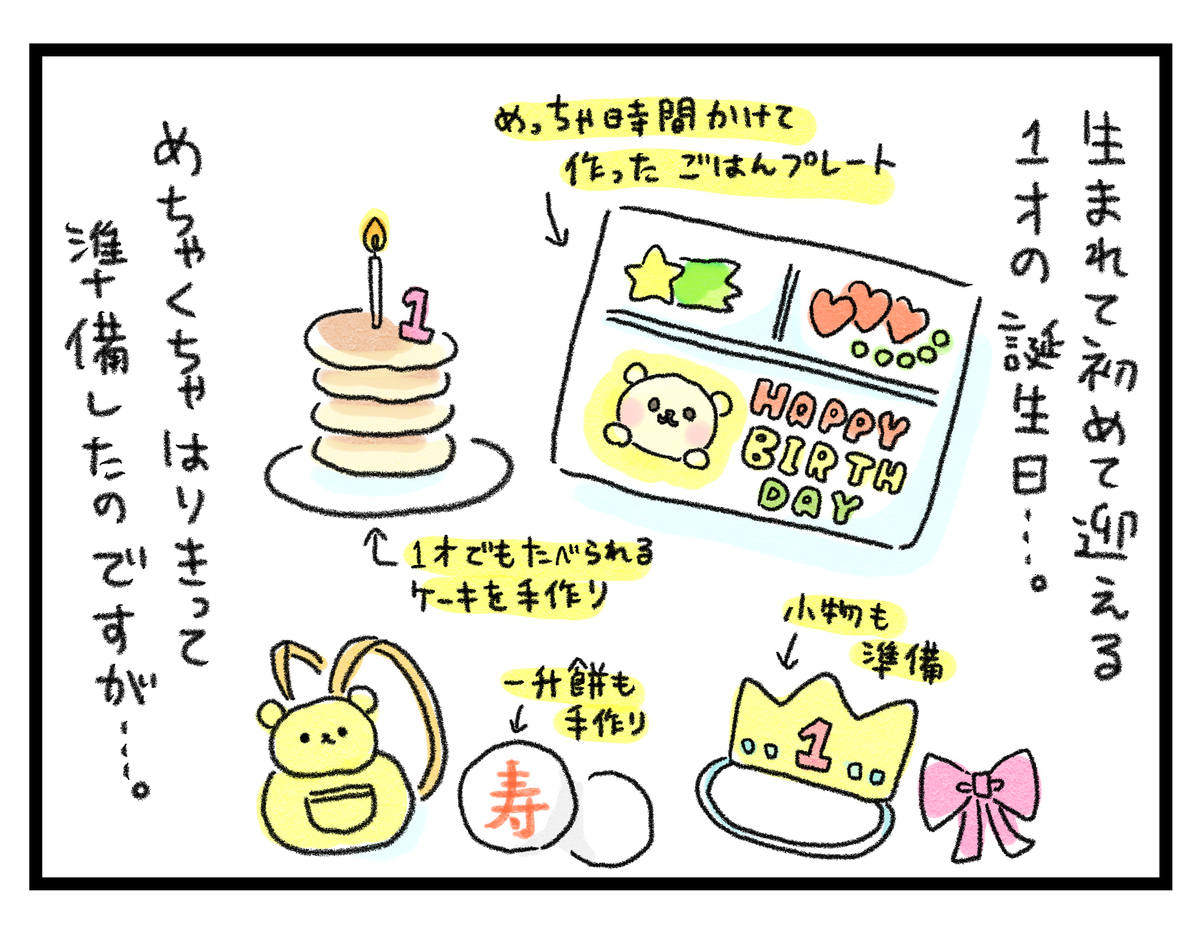 生まれて初めて迎える
1才の誕生日…。
めっちゃ時間かけて
作ったごはんプレート
HAPPY
BIRTH
DAY
1
1才でもたべられる
ケーキを手作り
小物も
準備
1
一升餅も
手作り
寿
めちゃくちゃはりきって
準備したのですが…。